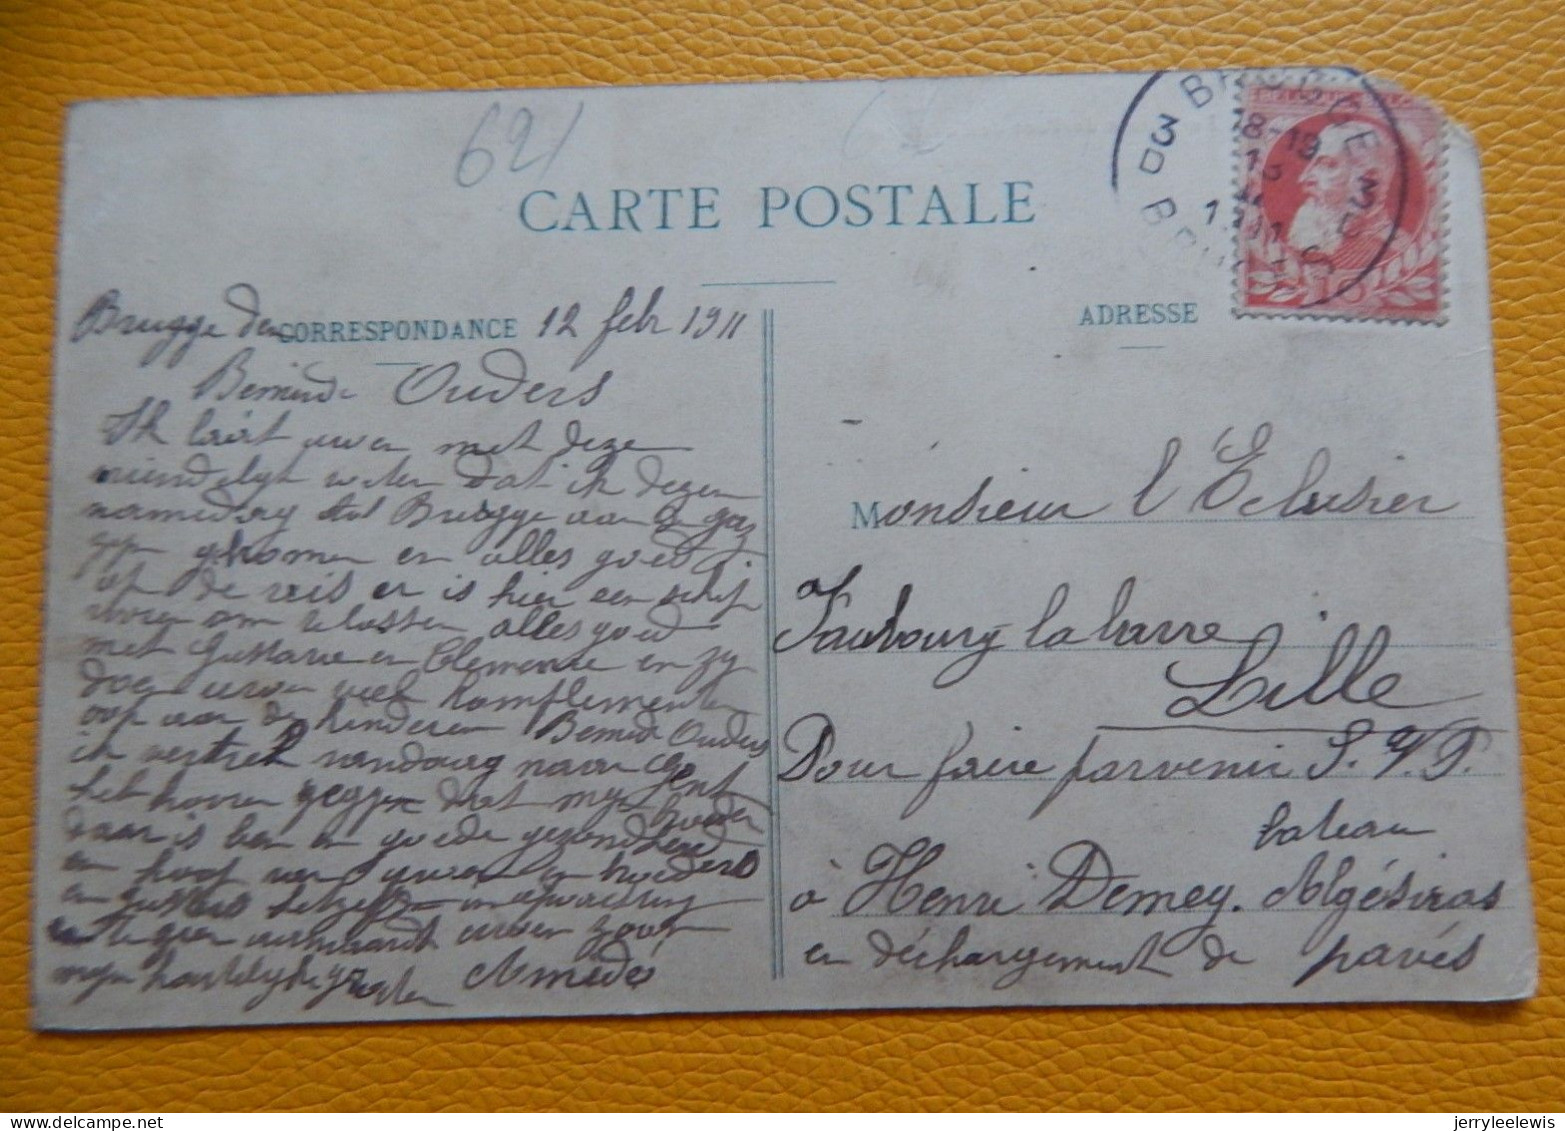 621
CARTE POSTALE
3 BRUGGE 3
8-19
13
CORRESPONDANCE
Brugge den 12 febr 1911
Beminde Ouders
Ik laat uwen met deze
vriendelyk weten dat ik dezen
namiddag tot Brugge aan de gaz
zyn gekomen en alles goed
op de reis er is hier een schip
voren om te lossen alles goed
met Gustave en Clemence en zy
doen uwen veel komplementen
oop aan de kinderen Beminde Ouders
ik vertrek vandaag naar Gent
het hooren zeggen dat myn broeder
daar is ben in goede gezondheid
en hoop van uwen broeders
en Gustave in afwachting
uwen zoon
myn hartelyke groeten Amedé
ADRESSE
Monsieur l'Eclusier
Faubourg la barre
Lille
Pour faire parvenir S. V. P.
bateau
à Henri Demey. Algésiras
en déchargement de pavés
jerryleelewis